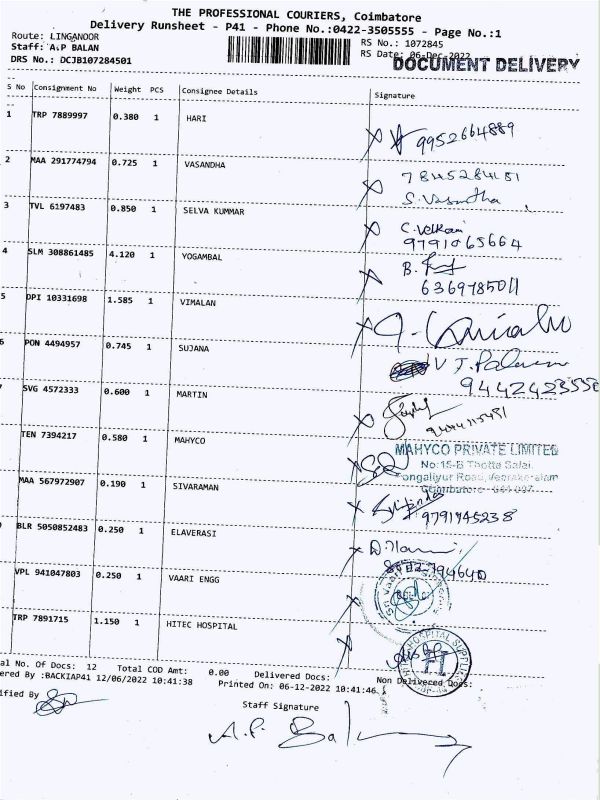 THE PROFESSIONAL COURIERS, Coimbatore
Delivery Runsheet - P41 - Phone No.:0422-3505555 - Page No.:1
Route: LINGANOOR
Staff: A.P BALAN
DRS No.: DCJB107284501
RS No.: 1072845
RS Date: 06-Dec-2022
DOCUMENT DELIVERY
S No Consignment No Weight PCS Consignee Details Signature
1 TRP 7889997 0.380 1 HARI 9952664889
2 MAA 291774794 0.725 1 VASANDHA 7845284181
S. Vasantha
3 TVL 6197483 0.850 1 SELVA KUMMAR
9791065664
4 SLM 308861485 4.120 1 YOGAMBAL B.
6369785011
5 DPI 10331698 1.585 1 VIMALAN
6 PON 4494957 0.745 1 SUJANA
SVG 4572333 0.600 1 MARTIN
TEN 7394217 0.580 1 MAHYCO MAHYCO PRIVATE LIMITED
No:15-B Thotta Salai,
MAA 567972907 0.190 1 SIVARAMAN
9791745238
BLR 5050852483 0.250 1 ELAVERASI
VPL 941047803 0.250 1 VAARI ENGG
TRP 7891715 1.150 1 HITEC HOSPITAL
al No. Of Docs: 12 Total COD Amt: 0.00 Delivered Docs: Non Delivered Docs:
ered By :BACKIAP41 12/06/2022 10:41:38 Printed On: 06-12-2022 10:41:46
ified By
Staff Signature
A.P. Bal